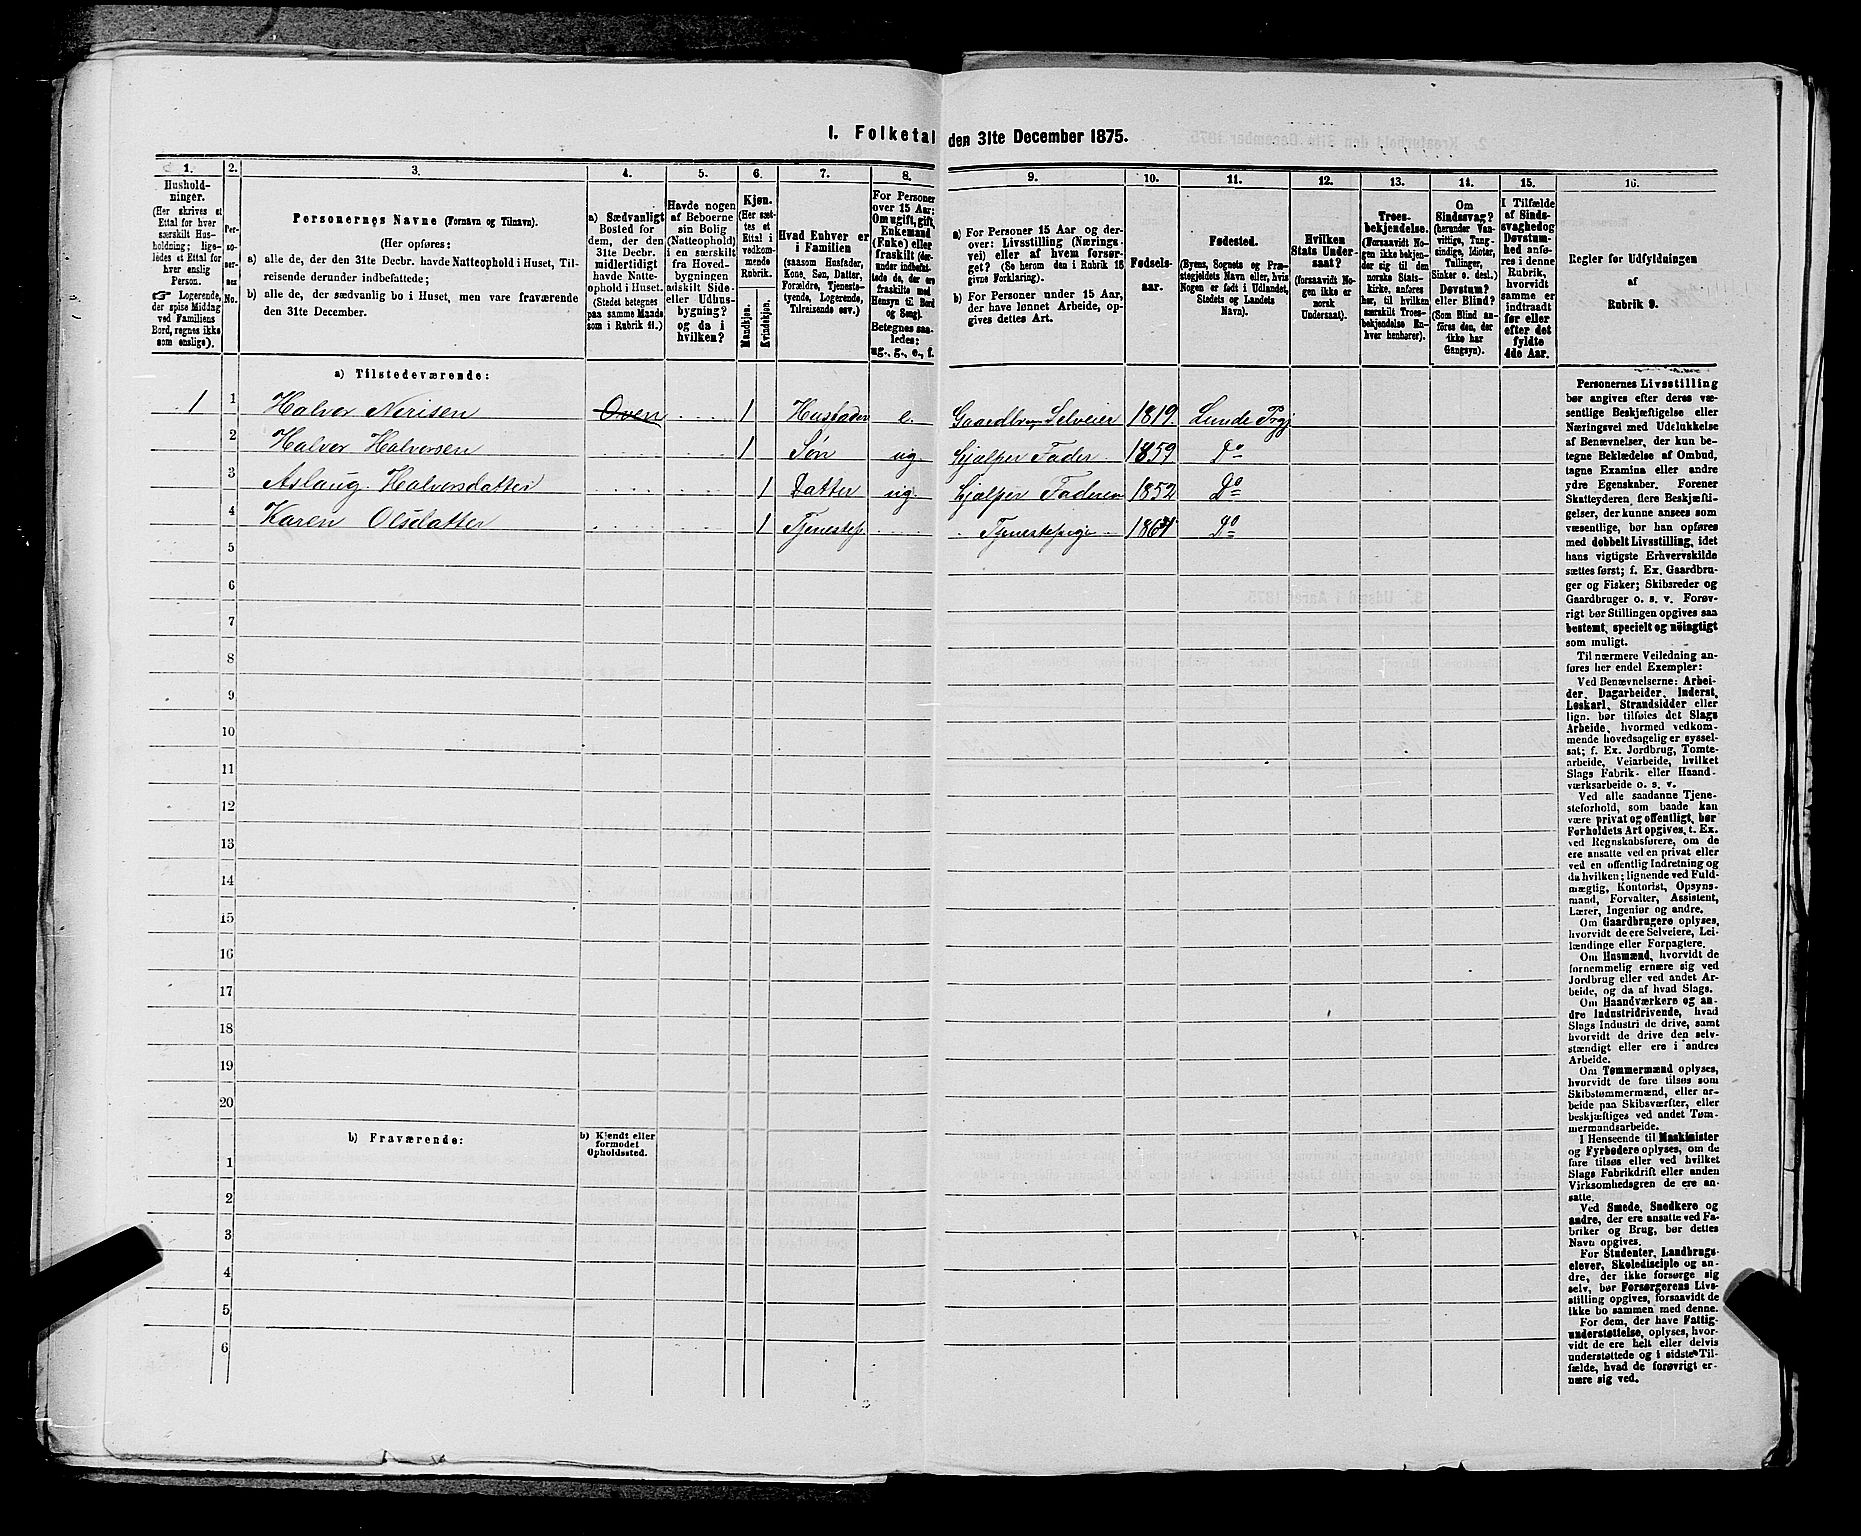 1. Folketal den 31te December 1875.
1. 2. 3. 4. 5. 6. 7. 8. 9. 10. 11. 12. 13. 14. 15. 16.
Hushold-
ninger.
(Her skrives et
Ettal for hver
særskilt Hus-
holdning; lige-
ledes et Ettal for
hver enslig
Person.
☞ Logerende,
der spise Middag
ved Familiens
Bord, regnes ikke
som enslige).
Per-
so-
ner-
nes
No.
Personernes Navne (Fornavn og Tilnavn).
(Her opføres:
a) alle de, der den 31te Decbr. havde Natteophold i Huset, Til-
reisende derunder indbefattede;
b) alle de, der sædvanlig bo i Huset, men vare fraværende
den 31te December.
a) Sædvanligt
Bosted for
dem, der den
31te Decbr.
midlertidigt
havde Natte-
ophold i Huset.
(Stedet betegnes
paa samme Maade
som i Rubrik 11.)
Havde nogen
af Beboerne
sin Bolig
(Natteophold)
i en særskilt
fra Hoved-
bygningen
adskilt Side-
eller Udhus-
bygning?
og da i
hvilken?
Kjøn.
(Her sæt-
tes et
Ettal i
vedkom-
mende
Rubrik.
Mandkjøn.
Kvindekjøn.
Hvad Enhver er
i Familien
(saasom Husfader,
Kone, Søn, Datter,
Forældre, Tjeneste-
tyende, Logerende,
Tilreisende osv.)
For Personer
over 15 Aar:
Om ugift, gift,
Enkemand
(Enke) eller
fraskilt (der-
under indbefat-
tede de, der ere
fraskilte med
Hensyn til Bord
og Seng).
Betegnes saa-
ledes:
ug., g., e., f.
a) For Personer 15 Aar og der-
over: Livsstilling (Nærings-
vei) eller af hvem forsør-
get? (Se herom den i Rubrik 16
givne Forklaring).
b) For Personer under 15 Aar,
der have lønnet Arbeide, op-
gives dettes Art.
Fødsels-
aar.
Fødested.
(Byens, Sognets og Præ-
stegjeldets Navn eller, hvis
Nogen er født i Udlandet,
Stedets og Landets
Navn).
Hvilken
Stats Under-
saat?
(forsaavidt No-
gen ikke er
norsk
Undersaat).
Troes-
bekjendelse.
(Forsaavidt No-
gen ikke bekjen-
der sig til den
norske Stats-
kirke, anføres
her, til hvilken
særskilt Troes-
bekjendelse En-
hver henhører).
Om
Sindssvag?
(herunder Van-
vittige, Tung-
sindige, Idioter,
Tullinger,
Sinker o. desl.)
Døvstum?
eller Blind?
(Som Blind an-
føres den, der
ikke har
Gangsyn).
I Tilfælde
af Sinds-
svaghed og
Døvstum-
hed anfø-
res i denne
Rubrik,
hvorvidt
samme er
indtraadt
før eller
efter det
fyldte
4de Aar.
Regler for Udfyldningen
af
Rubrik 9.
a) Tilstedeværende:
1 1 Halvor Nerisen Oven 1 Husfader e. Gaardbrug Selveier 1819. Lunde Prgj
2 Halvor Halvorsen 1 Søn ug. hjælper Fader 1859 Do
3 Aslaug Halvorsdatter 1 Datter ug. hjælper Faderen 1852 Do
4 Karen Olsdatter 1 Tjenestep. Tjenestepige Do
5
6
7
8
9
10
11
12
13
14
15
16
17
18
19
20
b) Fraværende:
b) Kjendt eller
formodet
Opholdssted.
1
2
3
4
5
6
Personernes Livsstilling
bør angives efter deres væ-
sentlige Beskjæftigelse eller
Næringsvei med Udelukkelse
af Benævnelser, der kun be-
tegne Beklædelse af Ombud,
tagne Examina eller andre
ydre Egenskaber. Forener
Skatteyderen flere Beskjæfti-
gelser, der kunne ansees som
væsentlige, bør han opføres
med dobbelt Livsstilling, idet
hans vigtigste Erhvervskilde
sættes først; f. Ex. Gaardbru-
ger og Fisker; Skibsreder og
Gaardbruger o. s. v. Forøv-
rigt bør Stillingen opgives saa
bestemt, specielt og nøiagtigt
som muligt.
Til nærmere Veiledning an-
føres her endel Exempler:
Ved Benævnelserne: Arbei-
der, Dagarbeider, Inderst,
Løskarl, Strandsidder eller
lign. bør tilføies det Slags
Arbeide, hvormed vedkom-
mende hovedsagelig er syssel-
sat; f. Ex. Jordbrug, Tomte-
arbeide, Veiarbeide, hvilket
Slags Fabrik- eller Haand-
værksarbeide o. s. v.
Ved alle saadanne Tjene-
steforhold, som baade kan
være privat og offentligt, bør
Forholdets Art opgives, t. Ex.
ved Regnskabsførere, om de
ere ansatte ved en privat eller
ved en offentlig Indretning og
da hvilken; lignende ved Fuld-
mægtig, Kontorist, Opsyns-
mand, Forvalter, Assistent,
Lærer, Ingeniør og andre.
Om Gaardbrugere oplyses,
hvorvidt de ere Selveiere, Lei-
lændinge eller Forpagtere.
Om Husmænd, hvorvidt de
fornemmelig ernære sig ved
Jordbrug eller ved andet Ar-
beide, og da af hvad Slags.
Om Haandværkere og an-
dre Industridrivende, hvad
Slags Industri de drive, samt
hvorvidt de drive den selv-
stændigt eller ere i andres
Arbeide.
Om Tømmermænd oplyses,
hvorvidt de fare tilsøs som
Skibstømmermænd, eller ar-
beide paa Skibsværfter, eller
beskjæftiges ved andet Tøm-
mermandsarbeide.
I Henseende til Maskinister
og Fyrbødere oplyses, om de
fare tilsøs eller ved hvilket
Slags Fabrikdrift eller anden
Virksomhedsgren de ere an-
satte.
Ved Smede, Snedkere og
andre, der ere ansatte ved Fa-
briker og Brug, bør dettes
Navn opgives.
For Studenter, Landbrugs-
elever, Skoledisciple og an-
dre, der ikke forsørge sig
selv, bør Forsørgerens Livs-
stilling opgives, forsaavidt de
ikke bo sammen med denne.
For dem, der have Fattig-
understøttelse, oplyses, hvor-
vidt de ere helt eller delvis
understøttede og i sidste Til-
fælde, hvad de forøvrigt er-
nære sig ved.